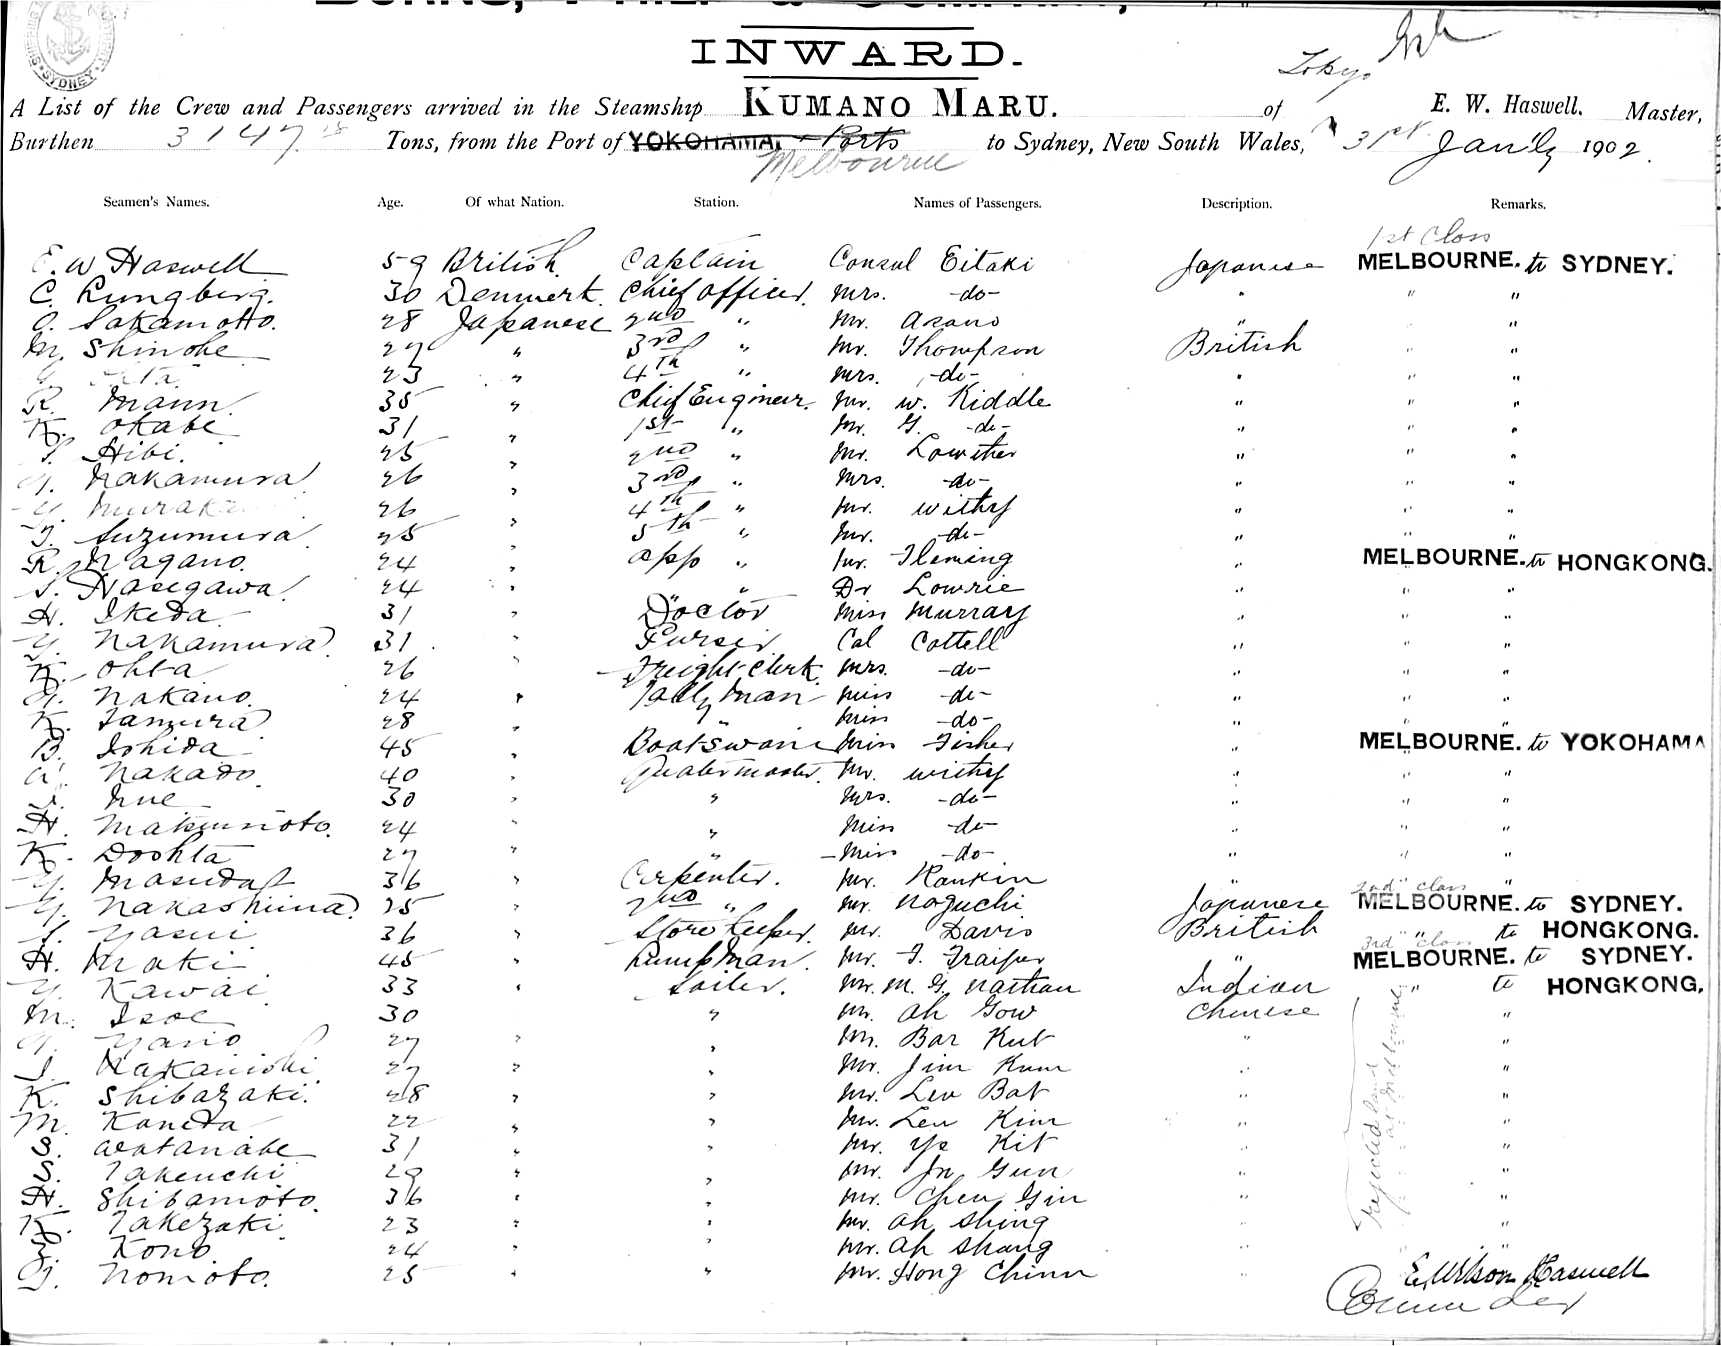 SYDNEY
INWARD.
Tokyo
A List of the Crew and Passengers arrived in the Steamship KUMANO MARU. of E. W. Haswell. Master,
Burthen 3147 Tons, from the Port of YOKOHAMA, & Ports to Sydney, New South Wales, 31st Jan'y 1902.
Melbourne
Seamen's Names. Age. Of what Nation. Station. Names of Passengers. Description. Remarks.
1st Class
E. W Haswell 59 British Captain Consul Eitaki Japanese MELBOURNE. to SYDNEY.
C. Lungberg. 30 Denmerk Chief officer. Mrs. -do- " " "
O. Sakamotto. 28 Japanese 2nd " Mr. Asano " " "
M. Shinohe 27 " 3rd " Mr. Thompson British " "
23 " 4th " Mrs. -do- " " "
R. Mann. 35 " Chief Engineer. Mr. W. Kiddle " " "
K. Okabe 31 " 1st " Mr. G. -do- " " "
Hibi. 25 " 2nd " Mr. Lowther " " "
Nakamura 26 " 3rd " Mrs. -do- " " "
26 " 4th " Mr. Withy " " "
Suzumura 25 " 5th " Mr. -do- " " "
R. Nagano. 24 " app " Mr. Fleming " MELBOURNE. to HONGKONG.
Hasegawa. 24 " " " Dr Lowrie " " "
H. Ikeda 31 " Doctor Miss Murray " " "
Y. Nakamura 31 " Purser Col Cottell " " "
K. Ohta 26 " Freight Clerk Mrs. -do- " " "
Nakano. 24 " Tally Man Miss -do- " " "
K. Tamura 28 " " Miss -do- " " "
B. Ishida 45 " Boatswain Miss Fisher " MELBOURNE. to YOKOHAMA
Nakado. 40 " Quatermaster. Mr. Withy " " "
30 " " Mrs. -do- " " "
H. Matsumoto. 24 " " Miss -do- " " "
K. Doohta 27 " " Miss -do- " " "
Y. Masuda 36 " Carpenter. Mr. Rankin " " "
2nd class
Y. Nakashima 25 " 2nd " Mr. Noguchi Japanese MELBOURNE. to SYDNEY.
Yasui 36 " Store Keeper. Mr. Davis British " to HONGKONG.
3rd class
H. Maki 45 " Lampman. Mr. F. Fraiper " MELBOURNE. to SYDNEY.
Y. Kawai 33 " Sailer. Mr. M. G. Nathan Indian " to HONGKONG.
M. Isoe 30 " Mr. Ah Gow Chinese "
Yano 27 " " Mr. Bar Kut " "
Nakanishi 27 " " Mr. Jim Kum " "
K. Shibazaki. 28 " " Mr. Leu Bat " "
M. Kaneda 22 " " Mr. Leu Kim " "
S. Watanabe 31 " " Mr. Ye Kit " "
S. Takeuchi 29 " " Mr. Jn Gun " "
H. Shibamoto. 36 " " Mr. Cheu Gin " "
K. Takezaki 23 " " Mr. Ah Shing " "
Z. Kono 24 " " Mr. Ah Shang "
Nomoto. 25 " " Mr. Hong Chinn "
Rejected
at Melbourne
E. Wilson Haswell
Commander